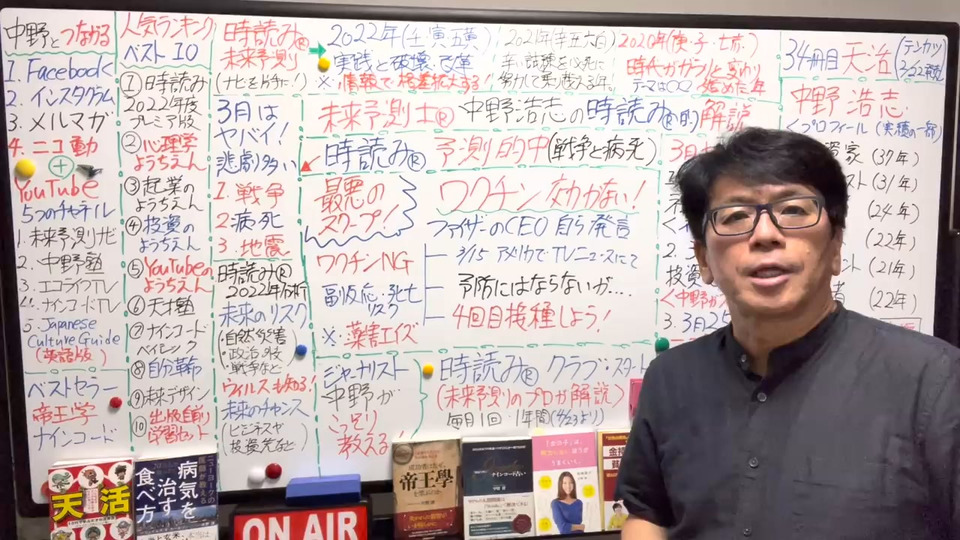 中野とつながる
1. Facebook
2. インスタグラム
3. メルマガ
4. ニコ動
+
YouTube
5つのチャネル
1. 未来予測ナビ
2. 中野塾
3. エニライフTV
4. ナインコードTV
5. Japanese
Culture Guide
(英語版)
ベストセラー
帝王学
ナインコード
人気ランキング
ベスト10
①時読み
2022年度
プレミア版
②心理学
ようちえん
③起業の
ようちえん
④投資の
ようちえん
⑤YouTubeの
ようちえん
⑥天才塾
⑦ナインコード
ベイシック
⑧自分革命
⑨未来デザイン
⑩出版直前
学習セット
時読み®
未来予測
3月は
ヤバイ!
悲劇多い
1. 戦争
2. 病・死
3. 地震
時読み®
2022年分析
未来のリスク
自然災害
・政治・外交
・戦争など
ウィルスも知る!
未来のチャンス
(ビジネスや
投資先など)
2022年(壬寅五黄)
実践と破壊・改革
※情報で格差拡大する!
2021年(辛丑六白)
2020年(庚・子・七赤)
時代がガラリと変わり
始めた年
未来予測士® 中野浩志の時読み®的解説
時読み® 予測的中(戦争と病死)
最悪の
スクープ!
ワクチンNG
副反応・死亡
リスク
※薬害エイズ
ワクチン効かない!
ファイザーのCEO自ら発言
3/15 アメリカでTVニュースにて
予防にはならないが....
4回目接種しよう!
ジャーナリスト
中野が
こっそり
教える!
時読み® クラブ・スタート
(未来予測のプロが解説)
毎月1回・1年間(4/23より)
34冊目 天活
(テンカツ
中野 浩志
<プロフィール(実績の一部)
資家(37年)
スト(31年)
(24年)
(22年)
ント(21年)
者(22年)
3月
投資
<中野が
3. 3月25
天活
病気を
治す
食べ方
ON AIR
帝王學
ナインコード占い